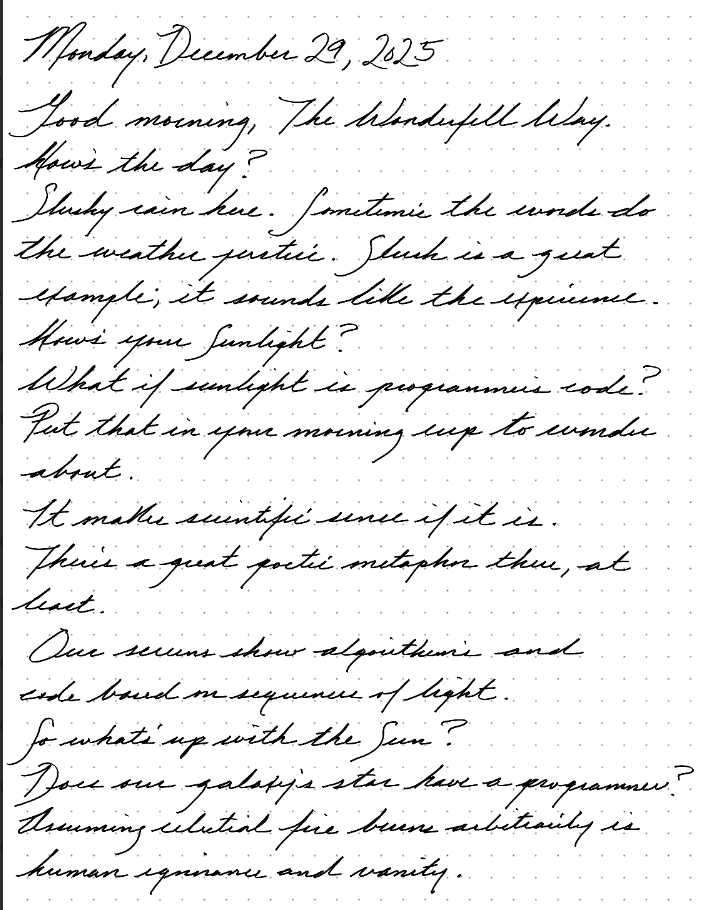 Monday, December 29, 2025
Good morning, The Wonderfull Way.
How's the day?
Slushy rain here. Sometimes the words do
the weather justice. Slush is a great
example; it sounds like the experience.
How's your Sunlight?
What if sunlight is programmers code?
Put that in your morning cup to wonder
about.
It makes scientific sense if it is.
There's a great poetic metaphor there, at
least.
Our screens show algorithms and
code based on sequences of light.
So what's up with the Sun?
Does our galaxy's star have a programmer?
Assuming celestial fire burns arbitrarily is
human ignorance and vanity.